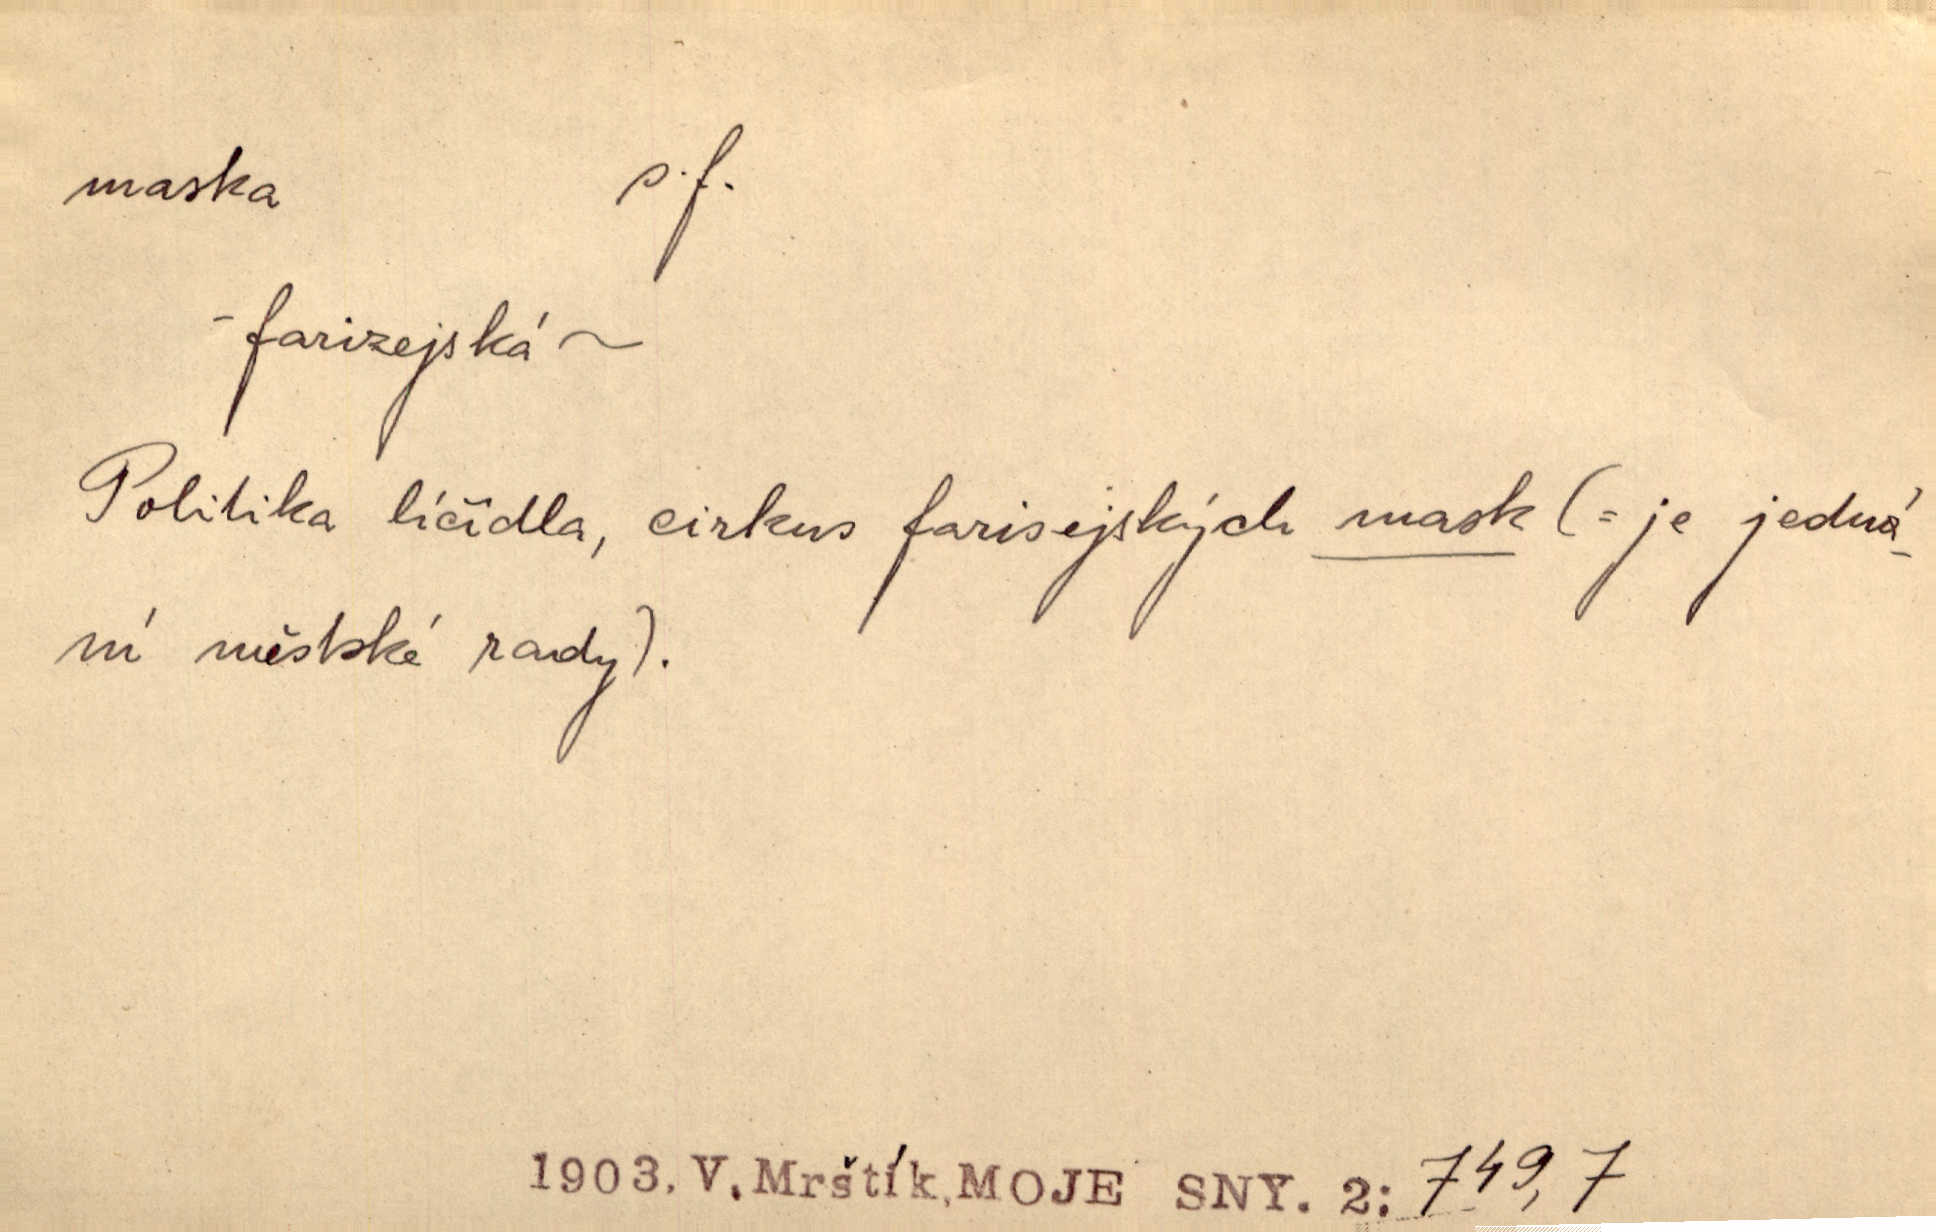 maska s.f.
-farizejská ~
Politika líčidla, cirkus farisejských mask (= je jedná-
ní městské rady).
1903. V. Mrštík, MOJE SNY. 2: 749, 7